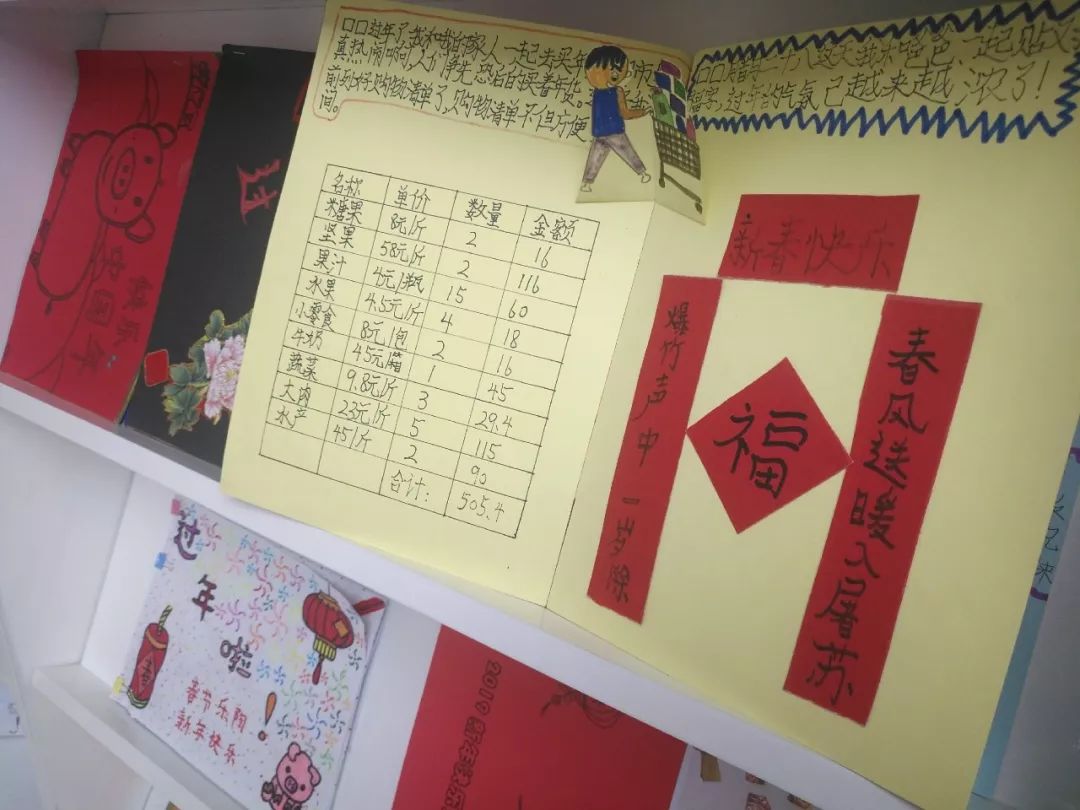 口口过年了,我和我的家人一起去买年
真热闹啊,人们争先恐后的买着年货。
前列好购物清单了,购物清单不但方便
间。
一起贴
福字,过年的气氛已越来越浓了!
名称 单价 数量 金额
糖果 8元/斤 2 16
坚果 58元/斤 2 116
果汁 4元/瓶 15 60
水果 4.5元/斤 4 18
小零食 8元/包 2 16
牛奶 45元/箱 1 45
蔬菜 9.8元/斤 3 29.4
大肉 23元/斤 5 115
水产 45/斤 2 90
合计: 505.4
新春快乐
爆竹声中一岁除
福
春风送暖入屠苏
欢乐
中国年
过
过年啦!
春
春节乐陶
新年快乐
2019 新年快乐